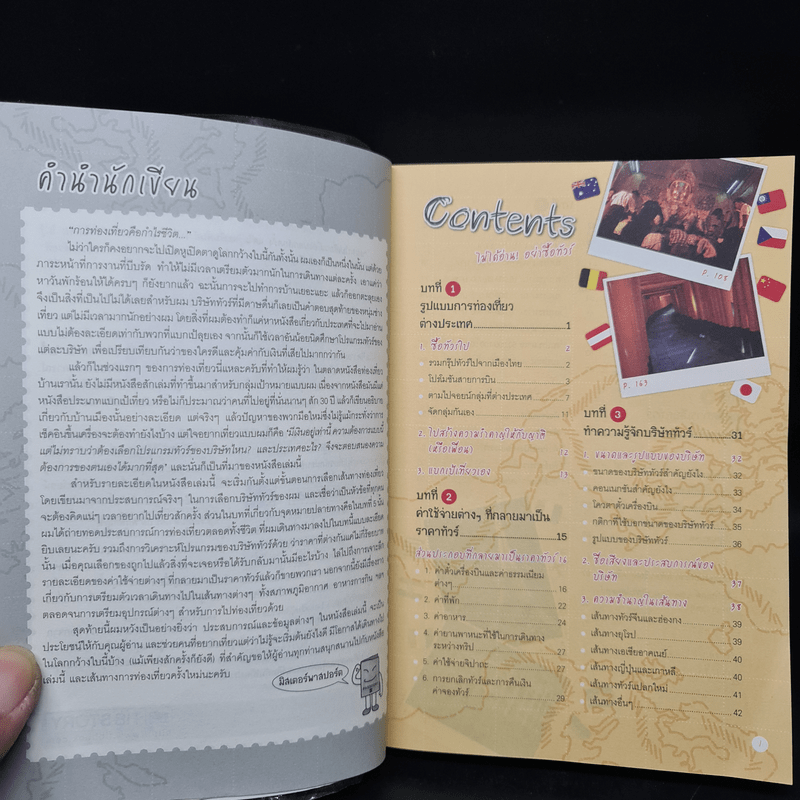 คำนำนักเขียน
"การท่องเที่ยวคือกำไรชีวิต..."
ไม่ว่าใครก็คงอยากจะไปเปิดหูเปิดตาดูโลกกว้างใบนี้กันทั้งนั้น ผมเองก็เป็นหนึ่งในนั้น แต่ด้วย
ภาระหน้าที่การงานที่บีบรัด ทำให้ไม่มีเวลาเตรียมตัวมากนักในการเดินทางแต่ละครั้ง เอาแค่ว่า
หาวันพักร้อนให้ได้ครบๆ ก็ยังยากแล้ว ฉะนั้นการจะไปทำการบ้านเยอะแยะ แล้วก็ออกตะลุยเอง
จึงเป็นสิ่งที่เป็นไปไม่ได้เลยสำหรับผม บริษัททัวร์ที่มีดาษดื่นก็เลยเป็นคำตอบสุดท้ายของหนุ่มช่าง
เที่ยว แต่ไม่มีเวลามากนักอย่างผม โดยสิ่งที่ผมต้องทำก็แค่หาหนังสือเกี่ยวกับประเทศที่จะไปมาอ่าน
แบบไม่ต้องละเอียดเท่ากับพวกที่แบกเป้ลุยเอง จากนั้นก็ใช้เวลาอันน้อยนิดศึกษาโปรแกรมทัวร์ของ
แต่ละบริษัท เพื่อเปรียบเทียบกันว่าของใครดีและคุ้มค่ากับเงินที่เสียไปมากกว่ากัน
แล้วก็ในช่วงแรกๆ ของการท่องเที่ยวนี่แหละครับที่ทำให้ผมรู้ว่า ในตลาดหนังสือท่องเที่ยว
บ้านเรานั้น ยังไม่มีหนังสือสักเล่มที่ทำขึ้นมาสำหรับกลุ่มเป้าหมายแบบผม เนื่องจากหนังสือมันมีแค่
หนังสือประเภทแบกเป้เที่ยว หรือไม่ก็ประมาณว่าคนที่ไปอยู่ที่นั่นนานๆ สัก 30 ปี แล้วก็เขียนอธิบาย
เกี่ยวกับบ้านเมืองนั้นอย่างละเอียด แต่จริงๆ แล้วปัญหาของพวกมือใหม่ซึ่งไม่รู้แม้กระทั่งว่าการ
เช็คอินขึ้นเครื่องจะต้องทำยังไงบ้าง แต่ใจอยากเที่ยวแบบผมก็คือ "มีเงินอยู่เท่านี้ ความต้องการแบบนี้
แต่ไม่ทราบว่าต้องเลือกโปรแกรมทัวร์ของบริษัทไหน? และประเทศอะไร? จึงจะตอบสนองความ
ต้องการของตนเองได้มากที่สุด" และนั่นก็เป็นที่มาของหนังสือเล่มนี้
สำหรับรายละเอียดในหนังสือเล่มนี้ จะเริ่มกันตั้งแต่ขั้นตอนการเลือกเส้นทางท่องเที่ยว
โดยเขียนมาจากประสบการณ์จริงๆ ในการเลือกบริษัททัวร์ของผม และเชื่อว่าเป็นหัวข้อที่ทุกคน
จะต้องคิดแน่ๆ เวลาอยากไปเที่ยวสักครั้ง ส่วนในบทที่เกี่ยวกับจุดหมายปลายทางคือในบทที่ 5 นั้น
ผมได้ถ่ายทอดประสบการณ์การท่องเที่ยวตลอดทั้งชีวิต ที่ผมเดินทางมาลงไปในบทนี้แบบละเอียด
ยิบเลยนะครับ รวมถึงการวิเคราะห์โปรแกรมของบริษัททัวร์ด้วย
สุดท้ายนี้ผมหวังเป็นอย่างยิ่งว่า ประสบการณ์และข้อมูลต่างๆ ในหนังสือเล่มนี้ จะเป็น
ประโยชน์ให้กับคุณผู้อ่าน และช่วยคนที่อยากเที่ยวแต่ว่าไม่รู้จะเริ่มต้นยังไงดี มีโอกาสได้เดินทางไป
ในโลกกว้างใบนี้บ้าง (แม้เพียงสักครั้งก็ยังดี) ที่สำคัญขอให้ผู้อ่านทุกท่านสนุกสนานไปกับหนังสือ
เล่มนี้ และเส้นทางการท่องเที่ยวครั้งใหม่นะครับ
มิสเตอร์พาสปอร์ต
Contents
ไม่ได้อ่าน! อย่าซื้อทัวร์
P. 108
P. 163
บทที่ 1
รูปแบบการท่องเที่ยว
ต่างประเทศ 1
1. ซื้อทัวร์ไป 2
รวมกรุ๊ปทัวร์ไปจากเมืองไทย 2
โปรโมชันสายการบิน 3
ตามไปจอยนักลุ่มที่ต่างประเทศ 7
จัดกลุ่มกันเอง 11
2. ไปสร้างความรำคาญให้กับญาติ
(หรือเพื่อน) 12
3. แบกเป้เที่ยวเอง 13
บทที่ 2
ค่าใช้จ่ายต่างๆ ที่กลายมาเป็น
ราคาทัวร์ 15
ส่วนประกอบที่กลายมาเป็นราคาทัวร์ 15
1. ค่าตั๋วเครื่องบินและค่าธรรมเนียม
ต่างๆ 16
2. ค่าที่พัก
3. ค่าอาหาร 24
4. ค่ายานพาหนะที่ใช้ในการเดินทาง
ระหว่างทริป
5. ค่าใช้จ่ายจิปาถะ
6. การยกเลิกทัวร์และการคืนเงิน
ค่าจองทัวร์
บทที่ 3
ทำความรู้จักบริษัททัวร์ 31
1. ขนาดและรูปแบบของบริษัท 32
ขนาดของบริษัททัวร์สำคัญยังไง 32
คอนเนกชันสำคัญยังไง 33
โควตาตั๋วเครื่องบิน
กติกาที่ใช้บอกขนาดของบริษัททัวร์ 35
รูปแบบของบริษัททัวร์ 36
2. ชื่อเสียงและประสบการณ์ของ
บริษัท 37
3. ความชำนาญในเส้นทาง 38
เส้นทางทัวร์จีนและฮ่องกง 39
เส้นทางยุโรป 39
เส้นทางเอเชียอาคเนย์ 40
เส้นทางญี่ปุ่นและเกาหลี 40
เส้นทางทัวร์แปลกใหม่ 41
เส้นทางอื่นๆ 42